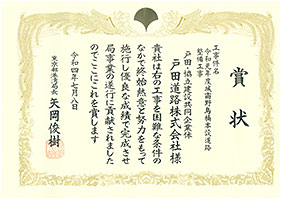 賞状
工事件名
令和元年度城南野鳥橋本設道路
整備工事
戸田・協立建設共同企業体
戸田道路株式会社様
貴社は右の工事を困難な条件の
なかで終始熱意と努力をもって
施行し優良な成績で完成させ
局事業の遂行に貢献されました
のでここにこれを賞します
令和四年七月八日
東京都港湾局長 矢岡俊樹